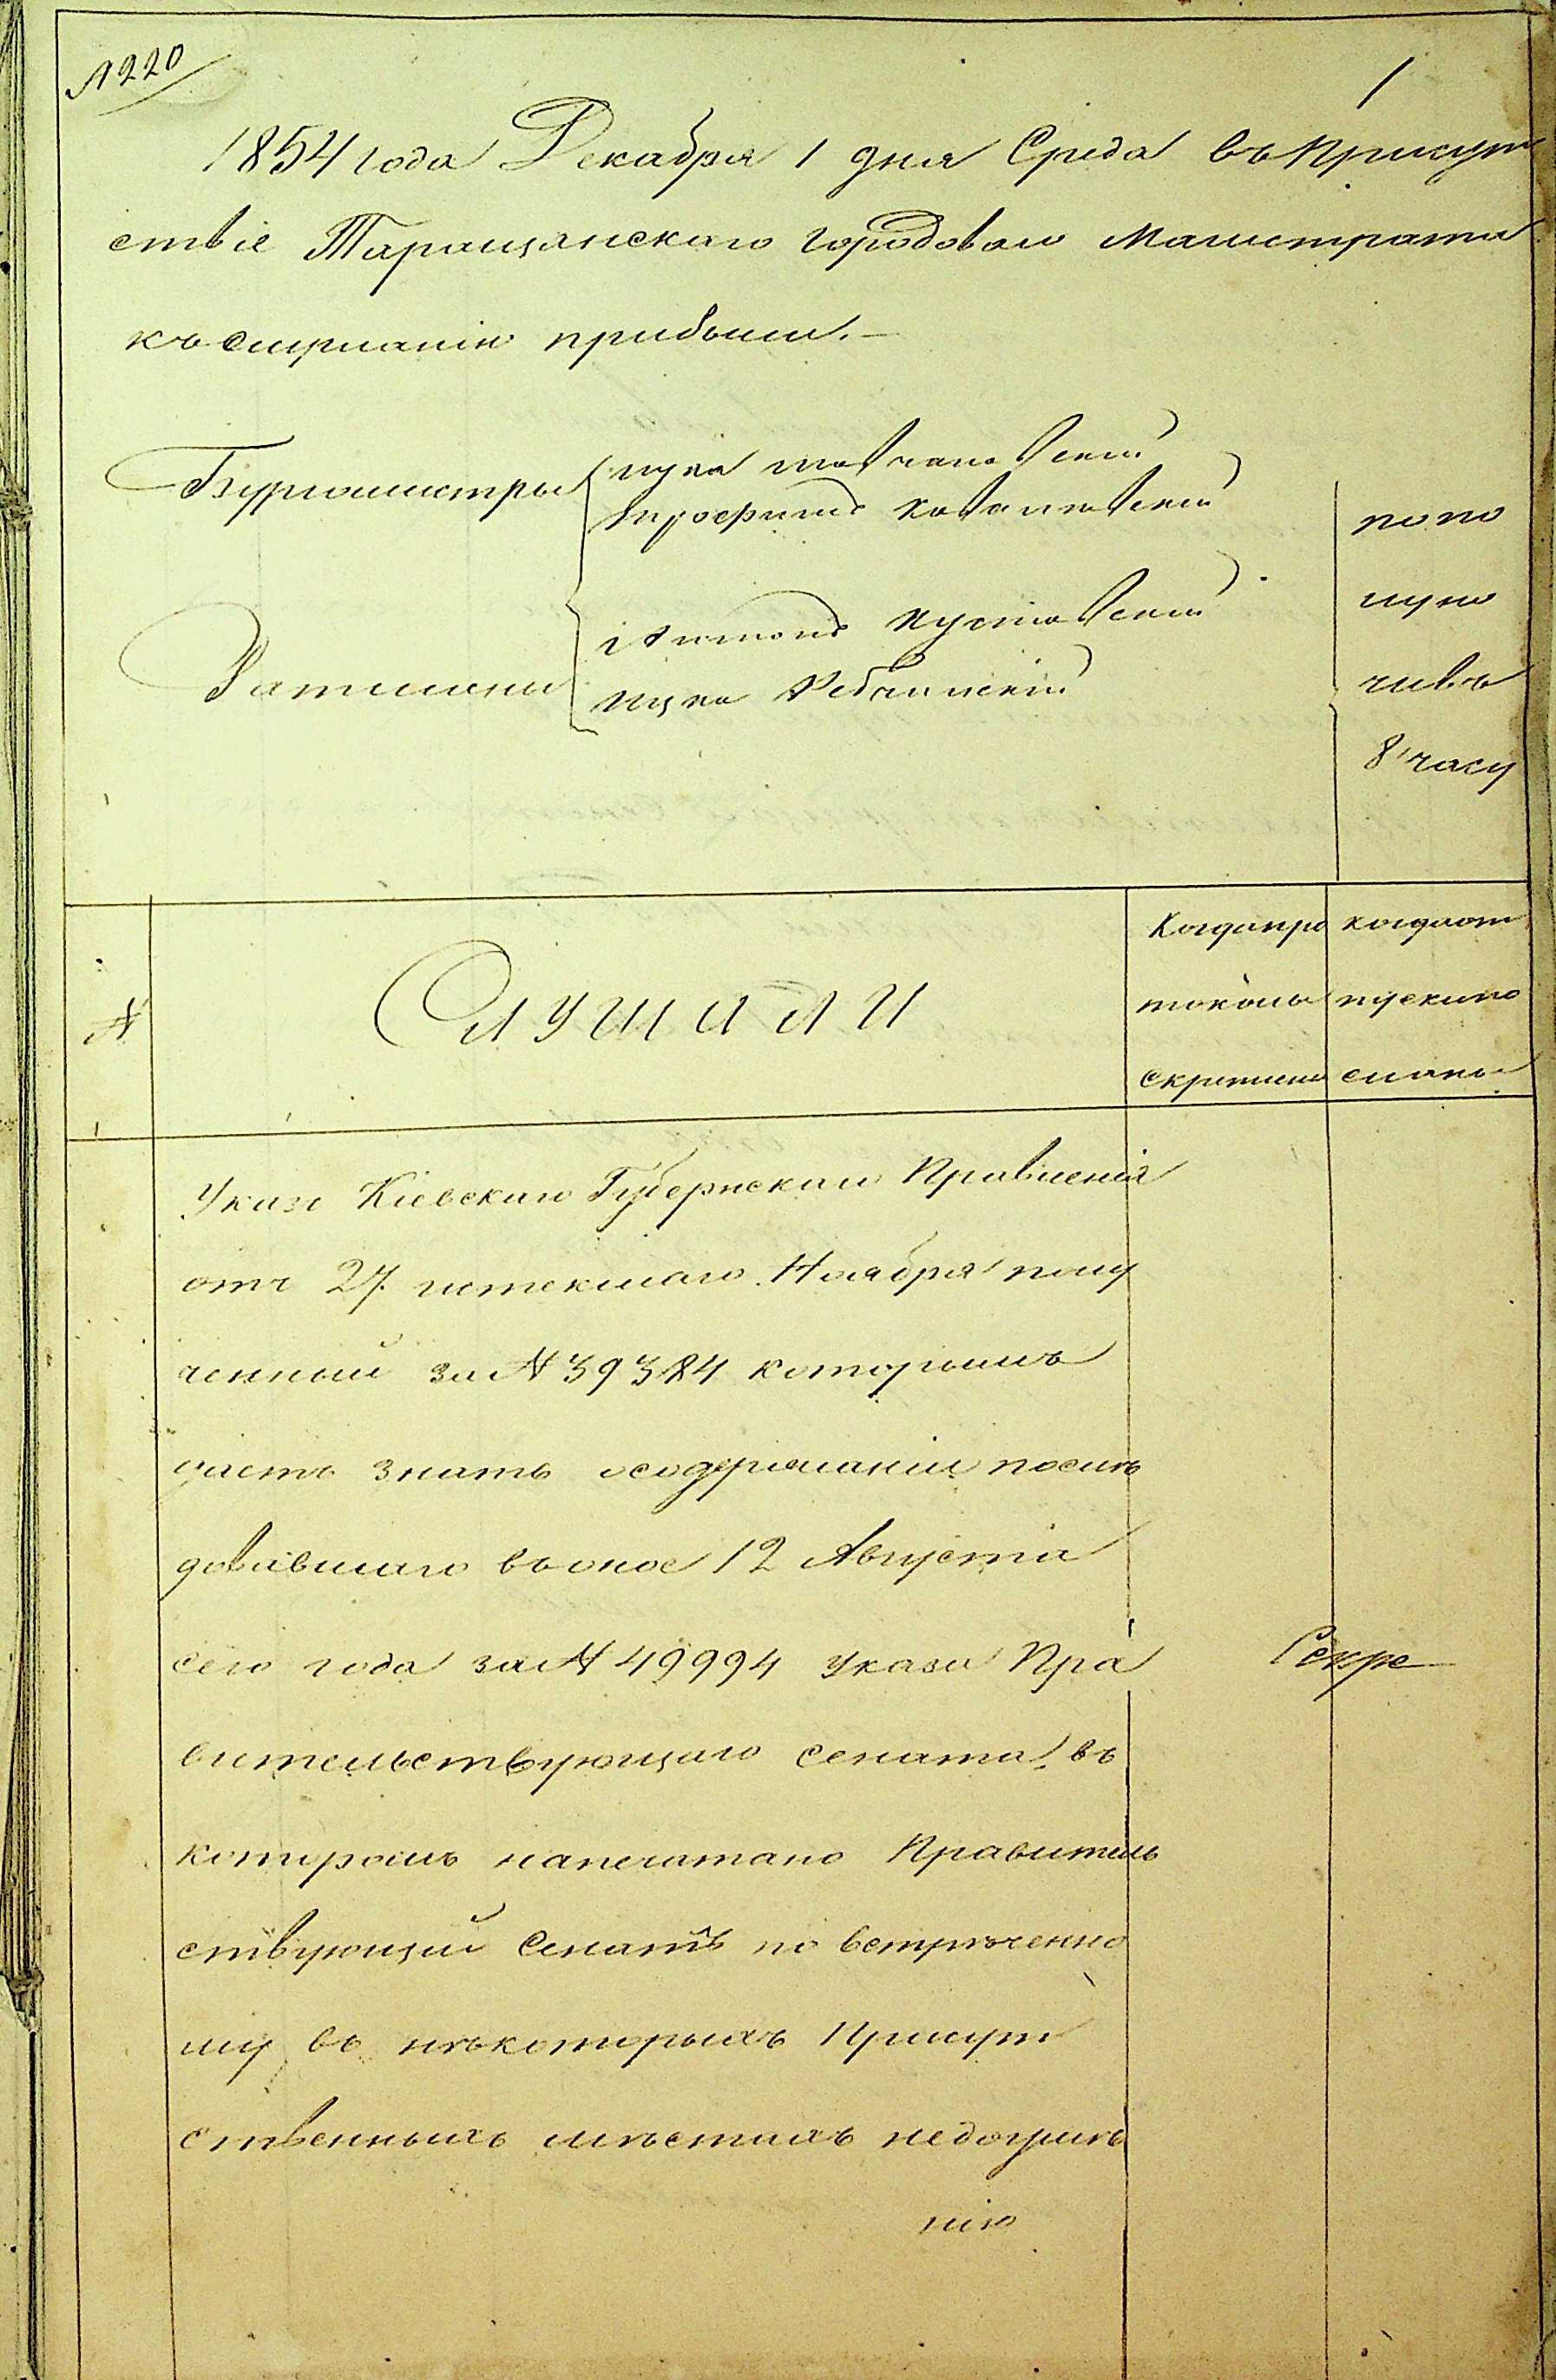 № 220
1
1854 года Декабря 1 дня Среда въ Присут
ствіе Таращанскаго Городоваго Магистрата
къ слушанію прибыли. —
Бургомистры
Лука
Трофимъ Ковалевскій
Ратманы
Антонъ Кустовскій
Лука
попо
луно
чивъ
8 часу
№
Слушали
Когда про
токолъ
скрепленъ
когда от
пускъ по
сланъ
Указъ Кіевскаго Губернскаго Правленія
отъ 27. истекшаго Ноября полу
ченный за № 39384 которымъ
даетъ знать о содержаніи послѣ
довавшаго въ оное 12 Августа
сего года за № 49994 указа Пра
вительствующаго Сената, въ
которомъ напечатано Правитель
ствующій Сенатъ по встрѣченно
му въ нѣкоторыхъ Присут
ственныхъ мѣстахъ недоумѣ
нію
Секре